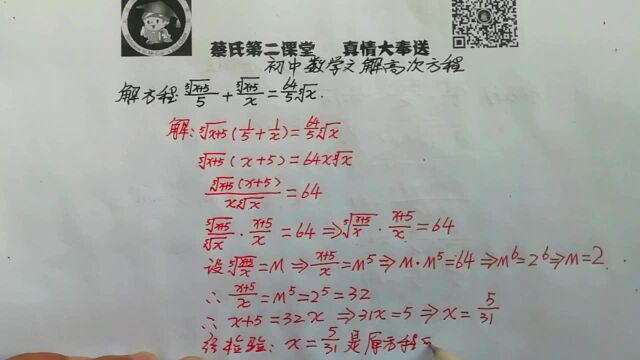 蔡氏第二课堂 真情大奉送
初中数学之解高次方程
解方程: ⁵√(x+5)/5 + ⁵√(x+5)/x = 64/5 ⁵√x.
解: ⁵√(x+5) (1/5 + 1/x) = 64/5 ⁵√x
⁵√(x+5) (x+5) = 64x⁵√x
⁵√(x+5) (x+5) / x⁵√x = 64
⁵√(x+5)/⁵√x · (x+5)/x = 64 ⇒ ⁵√((x+5)/x) · (x+5)/x = 64
设 ⁵√((x+5)/x) = M ⇒ (x+5)/x = M⁵ ⇒ M·M⁵ = 64 ⇒ M⁶ = 2⁶ ⇒ M = 2
∴ (x+5)/x = M⁵ = 2⁵ = 32
∴ x+5 = 32x ⇒ 31x = 5 ⇒ x = 5/31
经检验: x = 5/31 是原方程